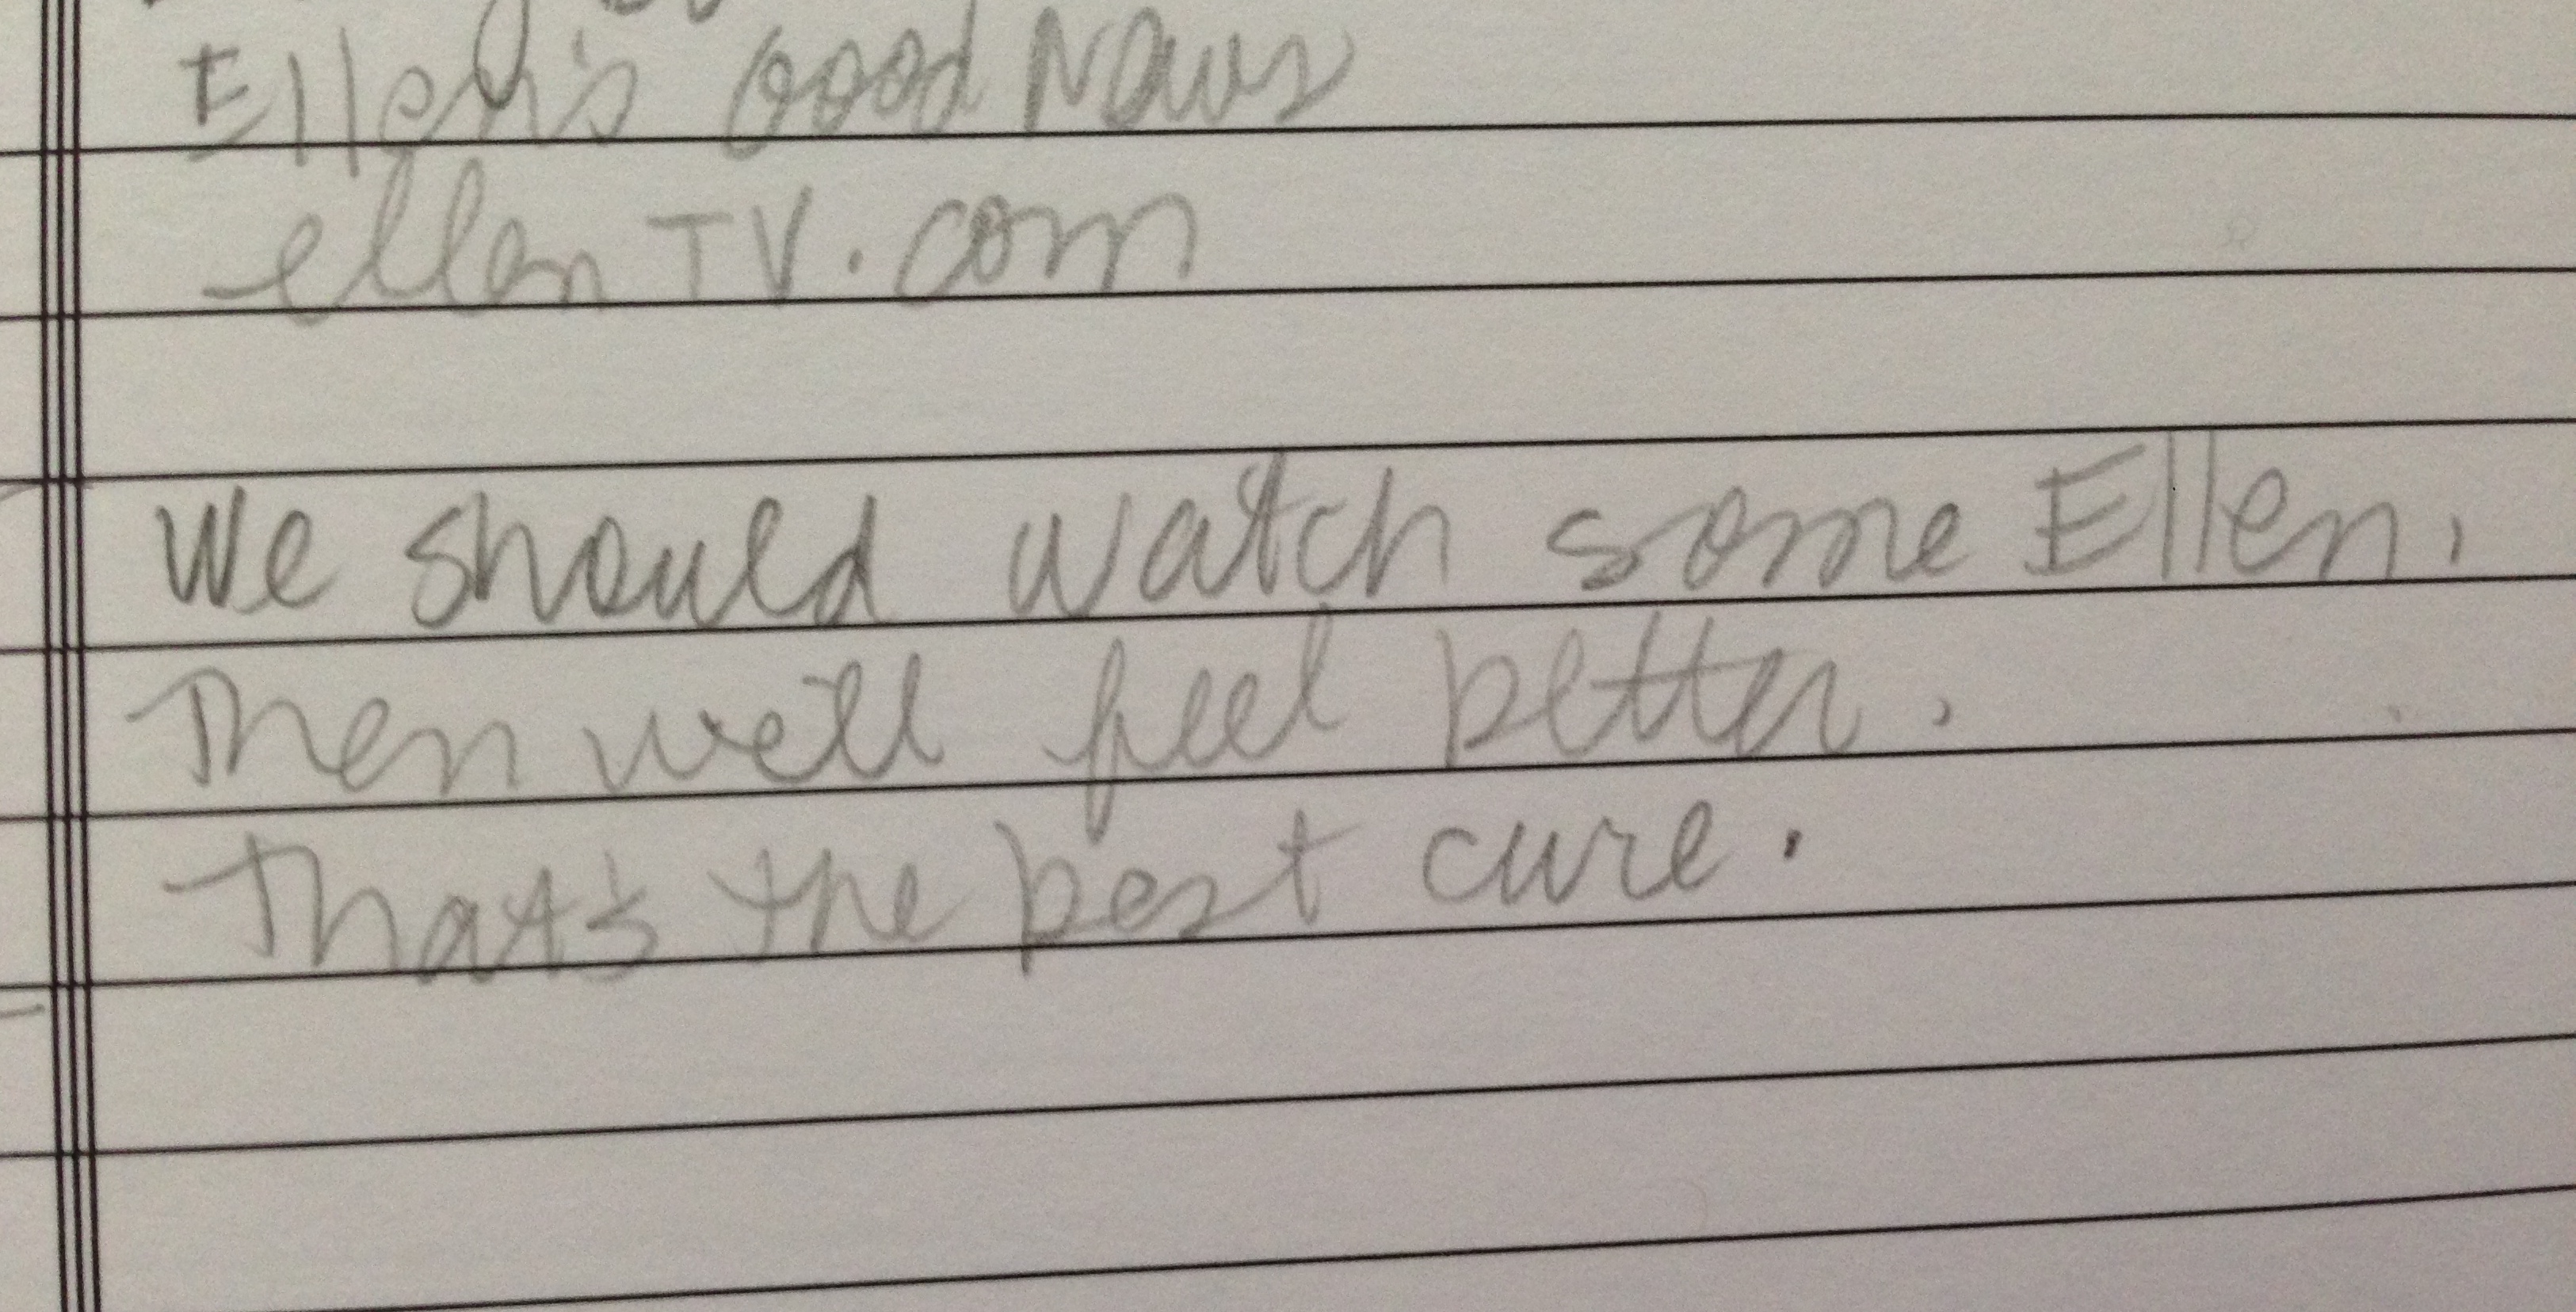 Ellen's Good News
ellenTV.com
We should watch some Ellen.
Then we'll feel better.
That's the best cure.